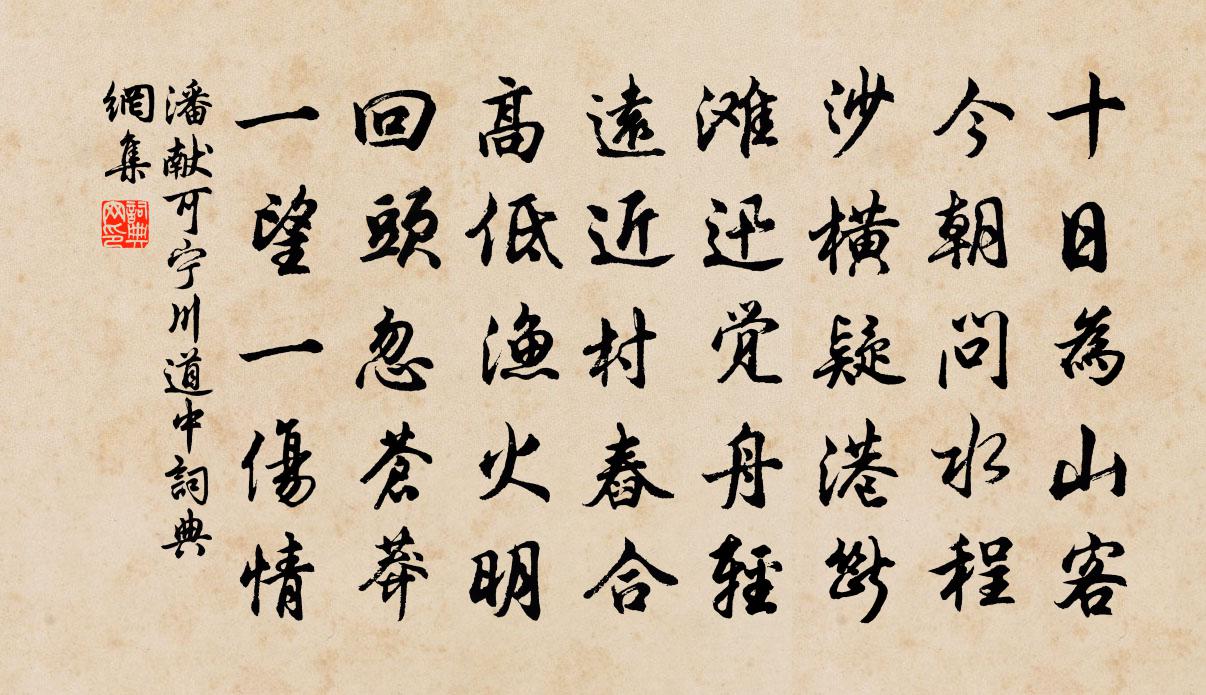 十日為山客
今朝問水程
沙横疑港斷
滩迅觉舟輕
遠近村舂合
高低漁火明
回頭忽蒼莽
一望一傷情
潘献可宁川道中詞典
網集
詞典
网印